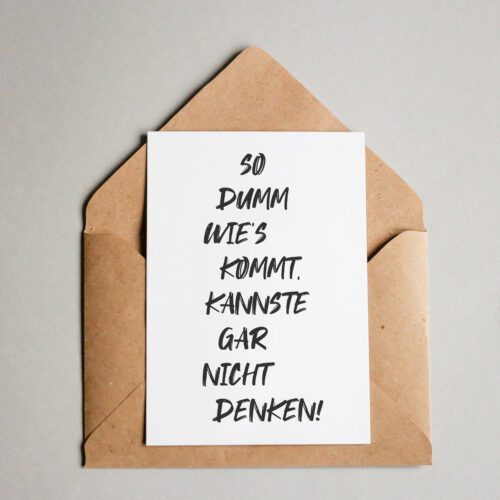 SO
DUMM
WIE'S
KOMMT,
KANNSTE
GAR
NICHT
DENKEN!